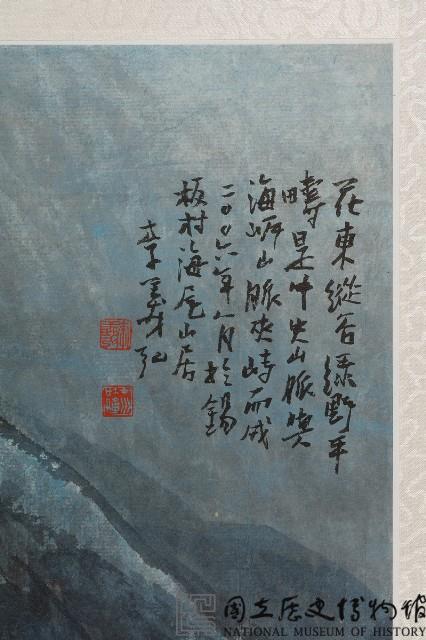 花東縱谷綠野平
疇是中央山脈與
海岸山脈夾峙而成
二〇〇六年八月於錫
板村海尾山居
李義弘
國立歷史博物館
NATIONAL MUSEUM OF HISTORY